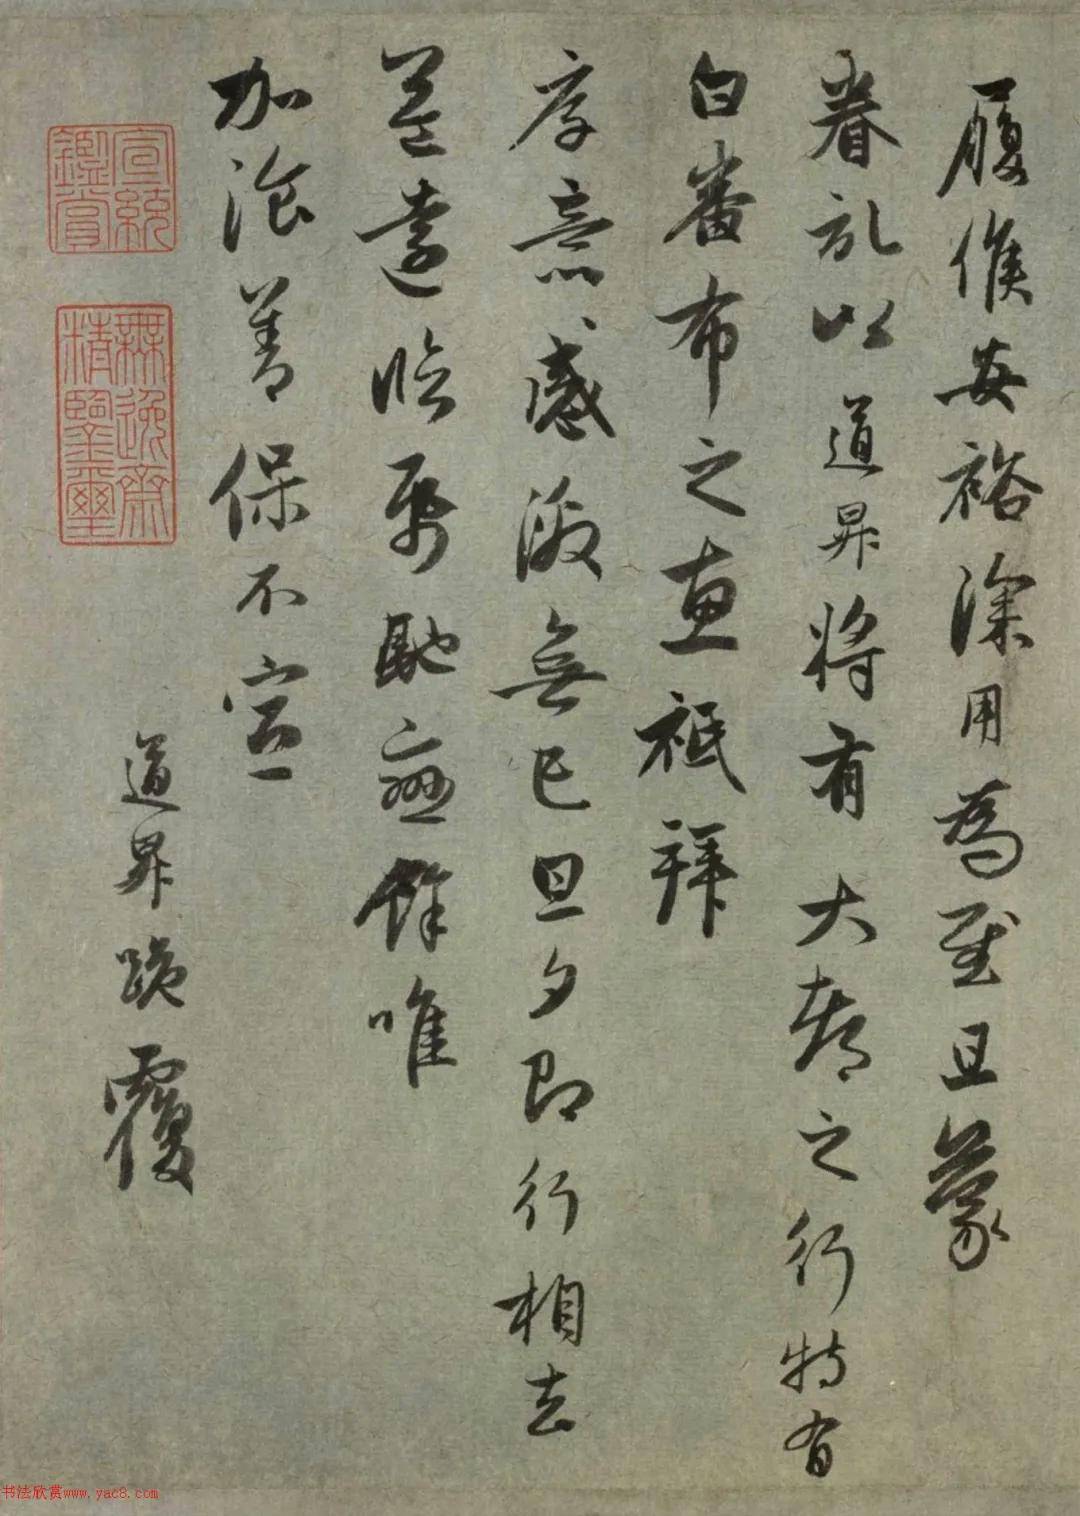 履候安裕深用為慰且蒙
眷乱以道昇将有大都之行特有
白番布之惠祗拜
厚意感激無已旦夕即行相去
益遠臨紙馳戀餘唯
加飡善保不宣
道昇跪覆
宣統鑑賞
無逸齋精鑒璽
书法欣赏www.yac8.com